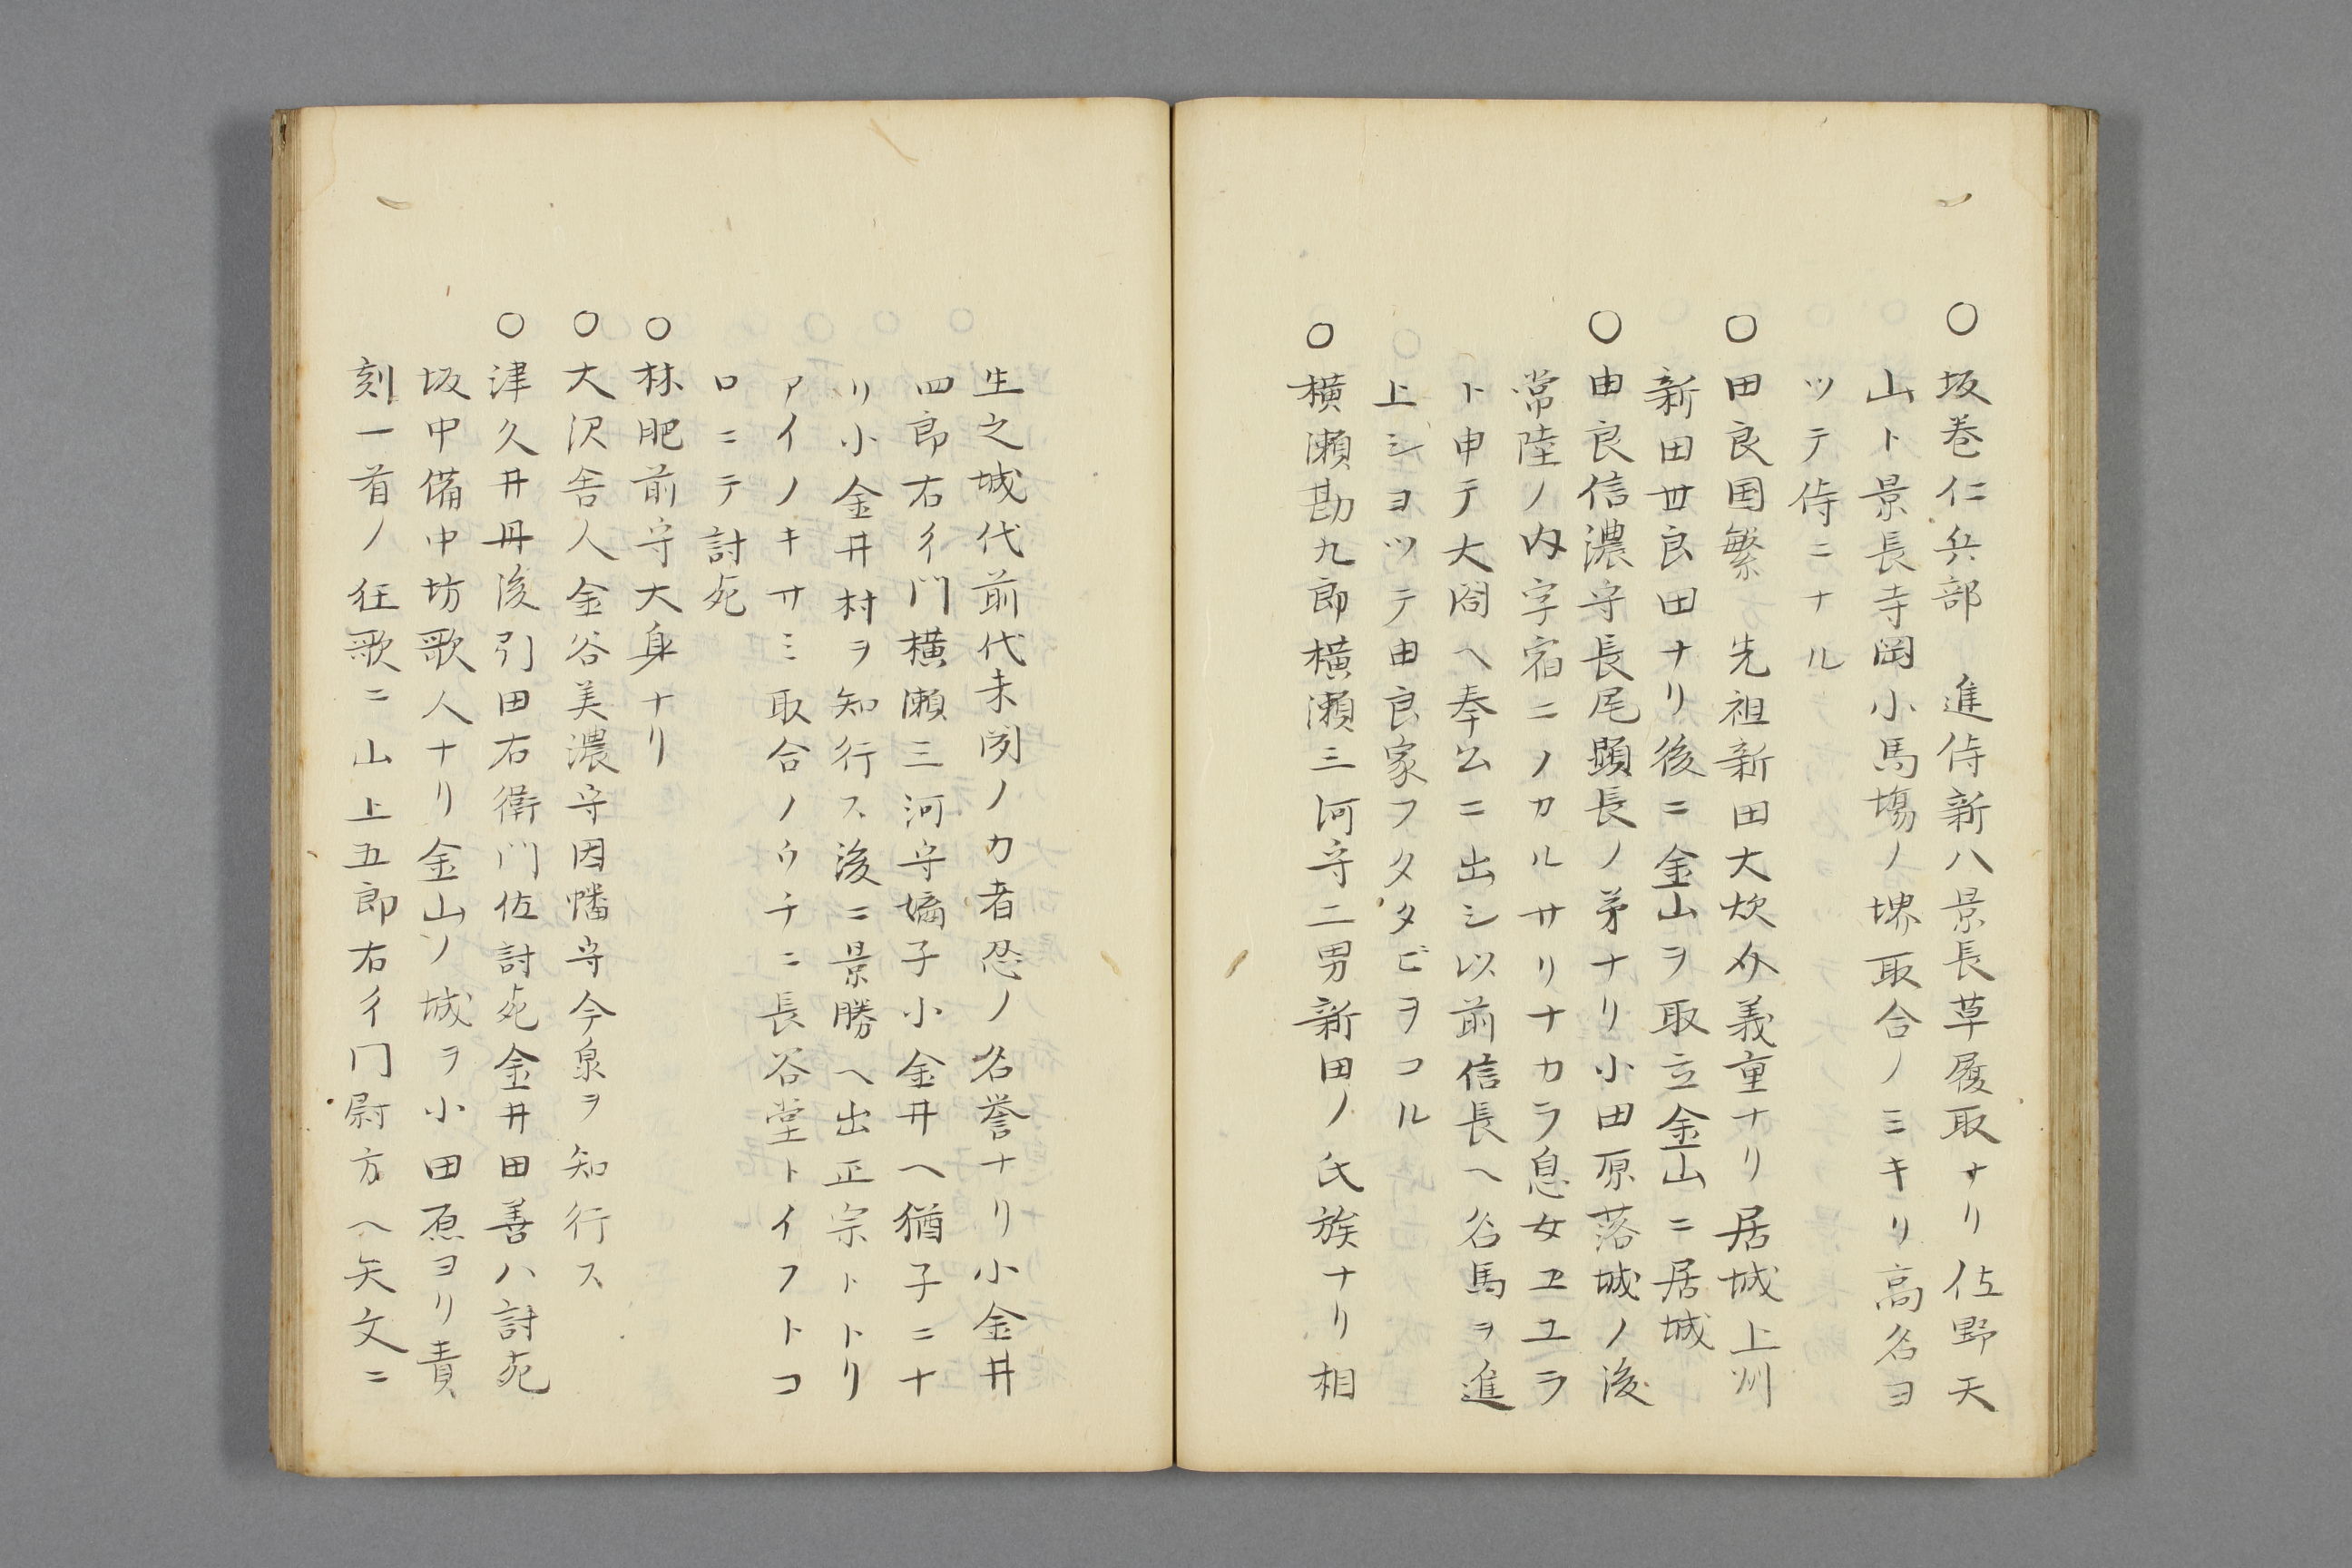 ○坂巻仁兵部　進侍新八景長草履取ナリ佐野天
山ト景長寺岡小馬場ノ堺取合ノミキリ高名ヨ
ツテ侍ニナル
○田良国繁　先祖新田大炊介義重ナリ居城上州
新田世良田ナリ後ニ金山ヲ取立金山ニ居城
○由良信濃守長尾顕長ノ弟ナリ小田原落城ノ後
常陸ノ内字宿ニノカルサリナカラ息女ヱユラ
ト申テ大閤ヘ奉公ニ出シ以前信長ヘ名馬ヲ進
上シヨツテ由良家フタタビヲコル
○横瀬勘九郎横瀬三河守二男新田ノ氏族ナリ相
生之城代前代未聞ノカ者忍ノ名誉ナリ小金井
四郎右衛門横瀬三河守嫡子小金井ヘ猶子ニナ
リ小金井村ヲ知行ス後ニ景勝ヘ出正宗トトリ
アイノキサミ取合ノウチニ長谷堂トイフトコ
ロニテ討死
○林肥前守大身ナリ
○大沢舎人金谷美濃守因幡守今泉ヲ知行ス
○津久井丹後引田右衛門佐討死金井田善八討死
坂中備中坊歌人ナリ金山ノ城ヲ小田原ヨリ責
刻一首ノ狂歌ニ山上五郎右衛門尉方ヘ矢文ニ